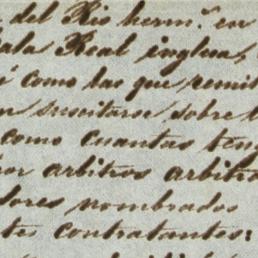 del Rio herm.º en
ala Real inglesa,
é como las que remit
n suscitarse sobre l
como cuantas ten
or arbitros arbitra
dores nombrados
tes contratantes: